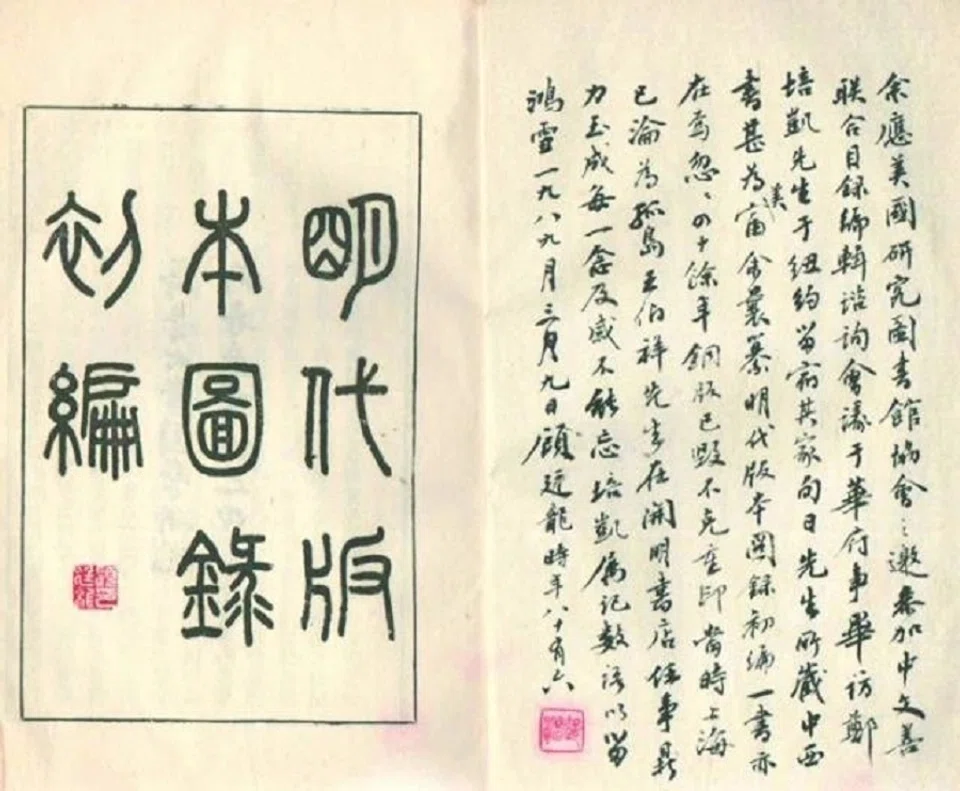 余應美國研究圖書館協會之邀參加中文善
联合目録編輯諮詢會議于華府事畢訪鄭
培凱先生于紐約留宿其家旬日先生所藏中西
書甚為美富余曩纂明代版本圖録初編一書亦
在焉忽〻四十餘年銅版已毀不克重印當時上海
已淪為孤島王伯祥先生在開明書店任事鼎
力玉成每一念及感不能忘培凱属記數語以留
鴻雪一九八九月三月九日顧廷龍時年八十有六
明代版
本圖録
初編